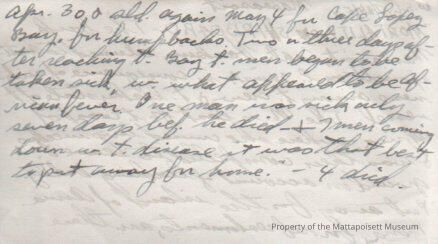 Apr. 30, & ald. again May 4 for Cape Lopez
Bay, for humpbacks. Two or three days af-
ter reaching t. Bay t. men began to be
taken sick, w. what appeared to be Af-
rican fever. One man was sick only
seven days bef. he died - & 7 men coming
down w. t. disease it was tho't best
to put away for home. - 4 died.
Property of the Mattapoisett Museum